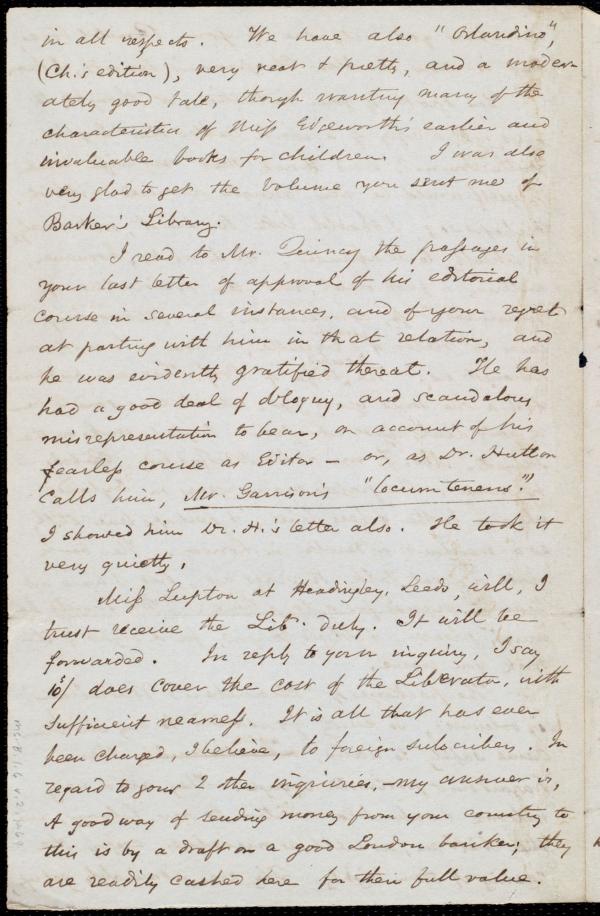 in all respects. We have also "Orlandino",
(Ch.'s edition), very neat & pretty, and a moder-
ately good tale, though wanting many of the
characteristics of Miss Edgeworth's earlier and
invaluable books for children. I was also
very glad to get the volume you sent me of
Barker's Library.
I read to Mr. Quincy the passages in
your last letter of approval of his editorial
course in several instances, and of your regret
at parting with him in that relation, and
he was evidently gratified thereat. He has
had a good deal of obloquy, and scandalous
misrepresentation to bear, on account of his
fearless course as Editor — or, as Dr. Hutton
calls him, Mr. Garrison's "locum tenens."
I showed him Dr. H.'s letter also. He took it
very quietly.
Miss Lupton at Headingley, Leeds, will, I
trust receive the Lib. duly. It will be
forwarded. In reply to your inquiry, I say
10/ does cover the cost of the Liberator, with
sufficient nearness. It is all that has ever
been charged, I believe, to foreign subscribers. In
regard to your 2 other inquiries, — my answer is,
A good way of sending money from your country to
this is by a draft on a good London banker; they
are readily cashed here for their full value.